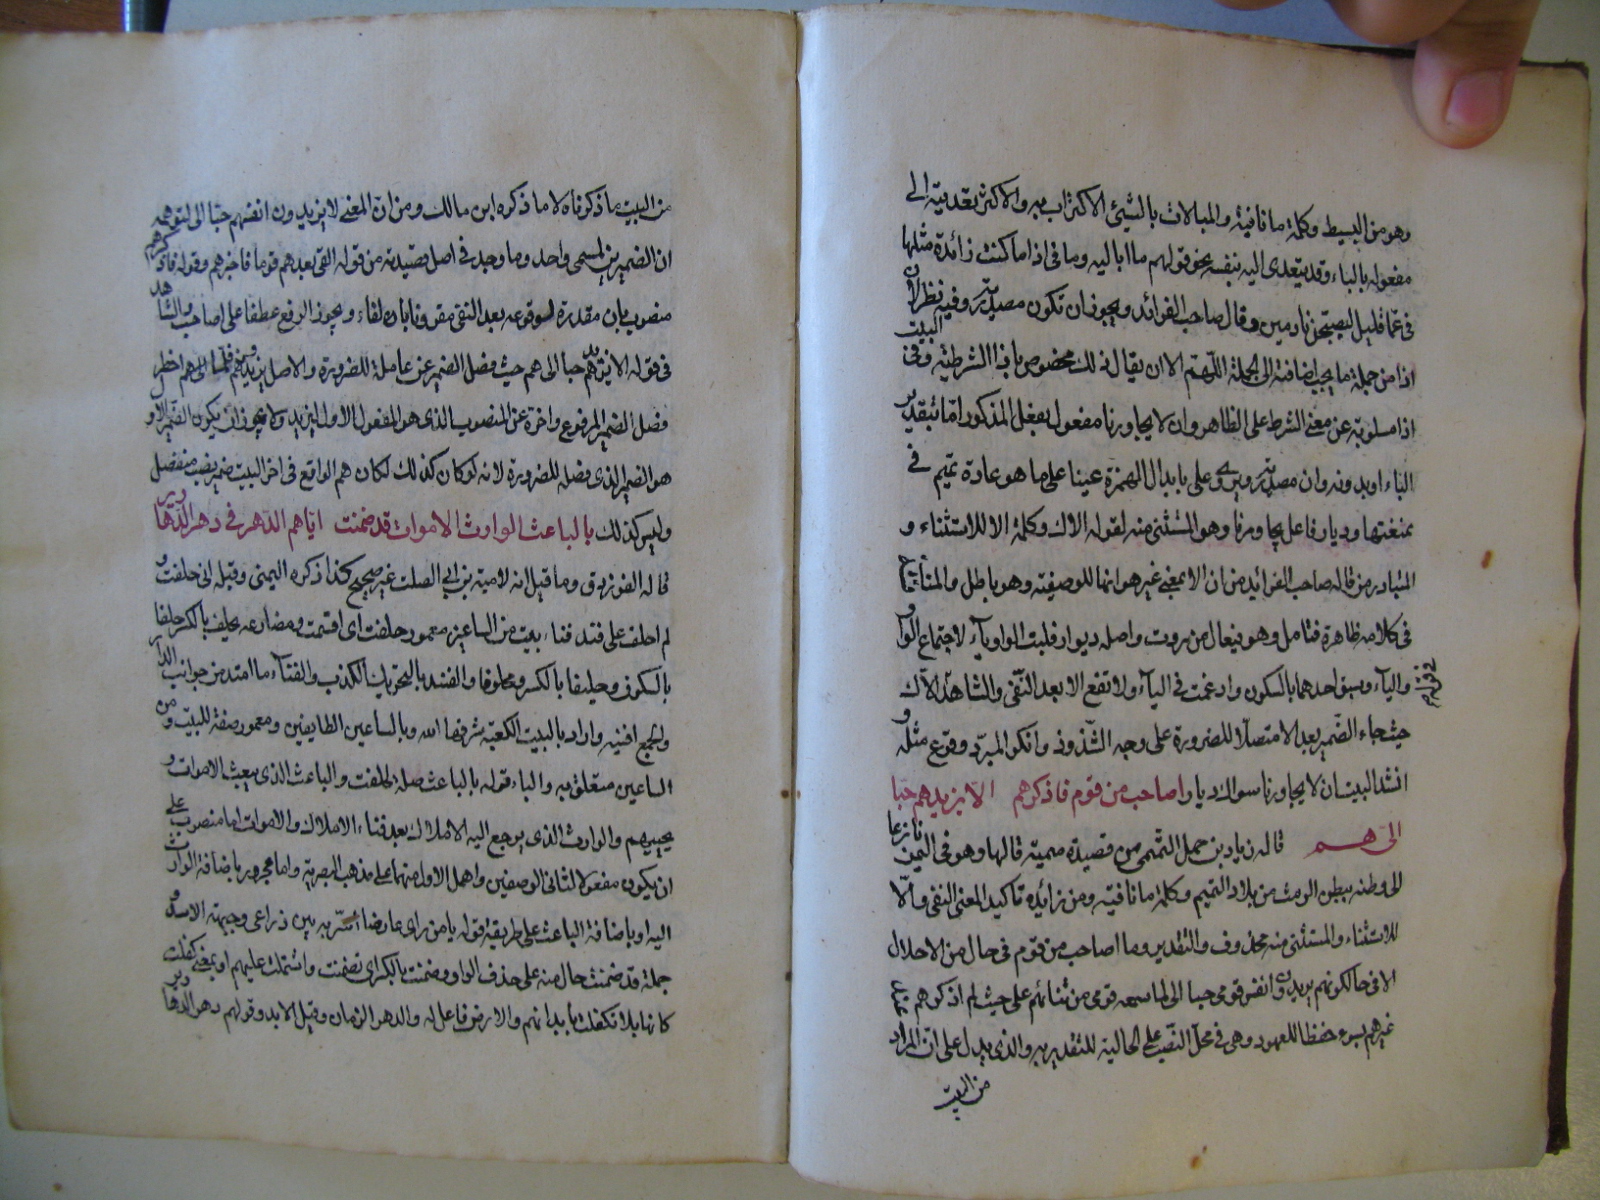 وهو من البسيط وكلمة ما نافية والمبالات بالشيئ الاكتراب به والاكثر تعديته الى
مفعوله بالباء وقد يتعدى اليه بنفسه نحو قولهم ما ابا ليه وما فى اذا ما كنت زائدة مثلها
فى عما قليل ليصبحن نادمين وقال صاحب الفرائد ويجوز ان تكون مصدرية وفيه نظر لان
اذا من جملة ما يجب اضافته الى الجملة اللهم الا ان يقال ذلك مخصوص باذا الشرطية وفى البيت
اذا مسلوبة عن معنى الشرط على الظاهر وان لا يجاورنا مفعول بفعل المذكور اما بتقدير
الباء او بدونه وان مصدرية ويروى على بابدال الهمزة عينا على ما هو عادة تميم فى
عنعنتها وديار فاعل يجاورنا وهو المستثنى منه لقوله الاك وكلمة الا للاستثناء و
المتبادر من قاله صاحب الفرائد من ان الا بمعنى غير هو انها للوصفية وهو باطل والمتأخر
فى كلامه ظاهرة فتامل وهو فيعال من دروت واصله ديوار قلبت الواو ياء لاجتماع الواو
والياء وسبق احدهما بالسكون وادغمت فى الياء ولا تقع الا بعد النفى والشاهد الاك
حيث جاء الضمير بعد الا متصلا للضرورة على وجه الشذوذ وانكر المبرد وقوع مثله و
انشد البيت ان لا يجاورنا سواك ديار واصاحب من قوم فاذكرهم الا يزيدهم حبا
الى هم قاله زياد بن حمل التميمى من قصيدة ميمية قالها وهو فى اليمن نازعا
الى وطنه ببطن الرمث من بلاد التميم وكلمة ما نافية ومن زائدة تاكيد المعنى النفى والا
للاستثناء والمستثنى منه محذوف والتقدير وما اصاحب من قوم فى حال من الاحلال
الا فى حال كونهم يزيدون انفس قومى حبا الى لما سمعه قومى من ثنائهم على حيث لم اذكرهم عند
غيرهم بسوء حفظا للعهود وهى فى محل النصب على الحالية للتقدير به والذى يدل على ان المراد
من البيت
من البيت ما ذكرناه لا ما ذكره ابن مالك ومن ان المعنى لا يزيدون انفسهم حبا الى لتوهمه
ان الضميرين لمسمى واحد وما وجد فى اصل قصيدته من قوله القى بعدهم قوما فاخبرهم وقوله فاذكرهم
منصوب بان مقدرة لوقوعه بعد النفى مقرونا بان لقاء ويجوز الرفع عطفا على اصاحب والشاهد
فى قوله الا يزيدهم حبا الى هم حيث فصل الضمير عن عامله للضرورة والاصل يزيدونهم فلما الى هم اضطر
فصل الضمير المرفوع واخره عن المنصوب الذى هو المفعول الاول ليزيد ولا يجوز ان يكون الضمير الاو
هو الضمير الذى فصل للضرورة لانه لو كان كذلك لكان هم الواقع فى اخر البيت ضمير نصب منفصل
وليس كذلك بالباعث الوارث الاموات قد ضمنت اياهم الدهر فى دهر الدهارير
قاله الفرزدق وما قيل انه لامية بن ابى الصلت غير صحيح كذا ذكره اليمنى وقبله انى حلفت و
لم احلف على فند فناء بيت من الساعين معمور حلفت اى اقسمت ومضارعه يحلف بالكسر حلفا
بالسكون وحليفا بالكسر ومحلوفا والفند بالتحريك الكذب والفناء ما امتد من جوانب الدار
والجمع افنية واراد بالبيت الكعبة شرفها الله وبالساعين الطايفين ومعمور صفة للبيت ومن
الساعين متعلق به والباء قوله بالباعث صلة لحلفت والباعث الذى يبعث الاموات و
يحييهم والوارث الذى يرجع اليه الاملاك بعد فناء الاملاك والاموات اما منصوب على
ان يكون مفعولا لثانى الوصفين واهمل الاول منهما على مذهب البصرية واما مجرور باضافة الوارث
اليه او باضافة الباعث على طريقة قوله يا من راى عارضا اسر به بين ذراعى وجبهة الاسد و
جملة قد ضمنت حال منه على حذف الواو وضمنت بالكسر اى تضمنت واشتملت عليهم او بمعنى كفلت
كانها بلا تكفلت بابدانهم والارض فاعل له والدهر الزمان وقيل الابد وقولهم دهر الدهارير